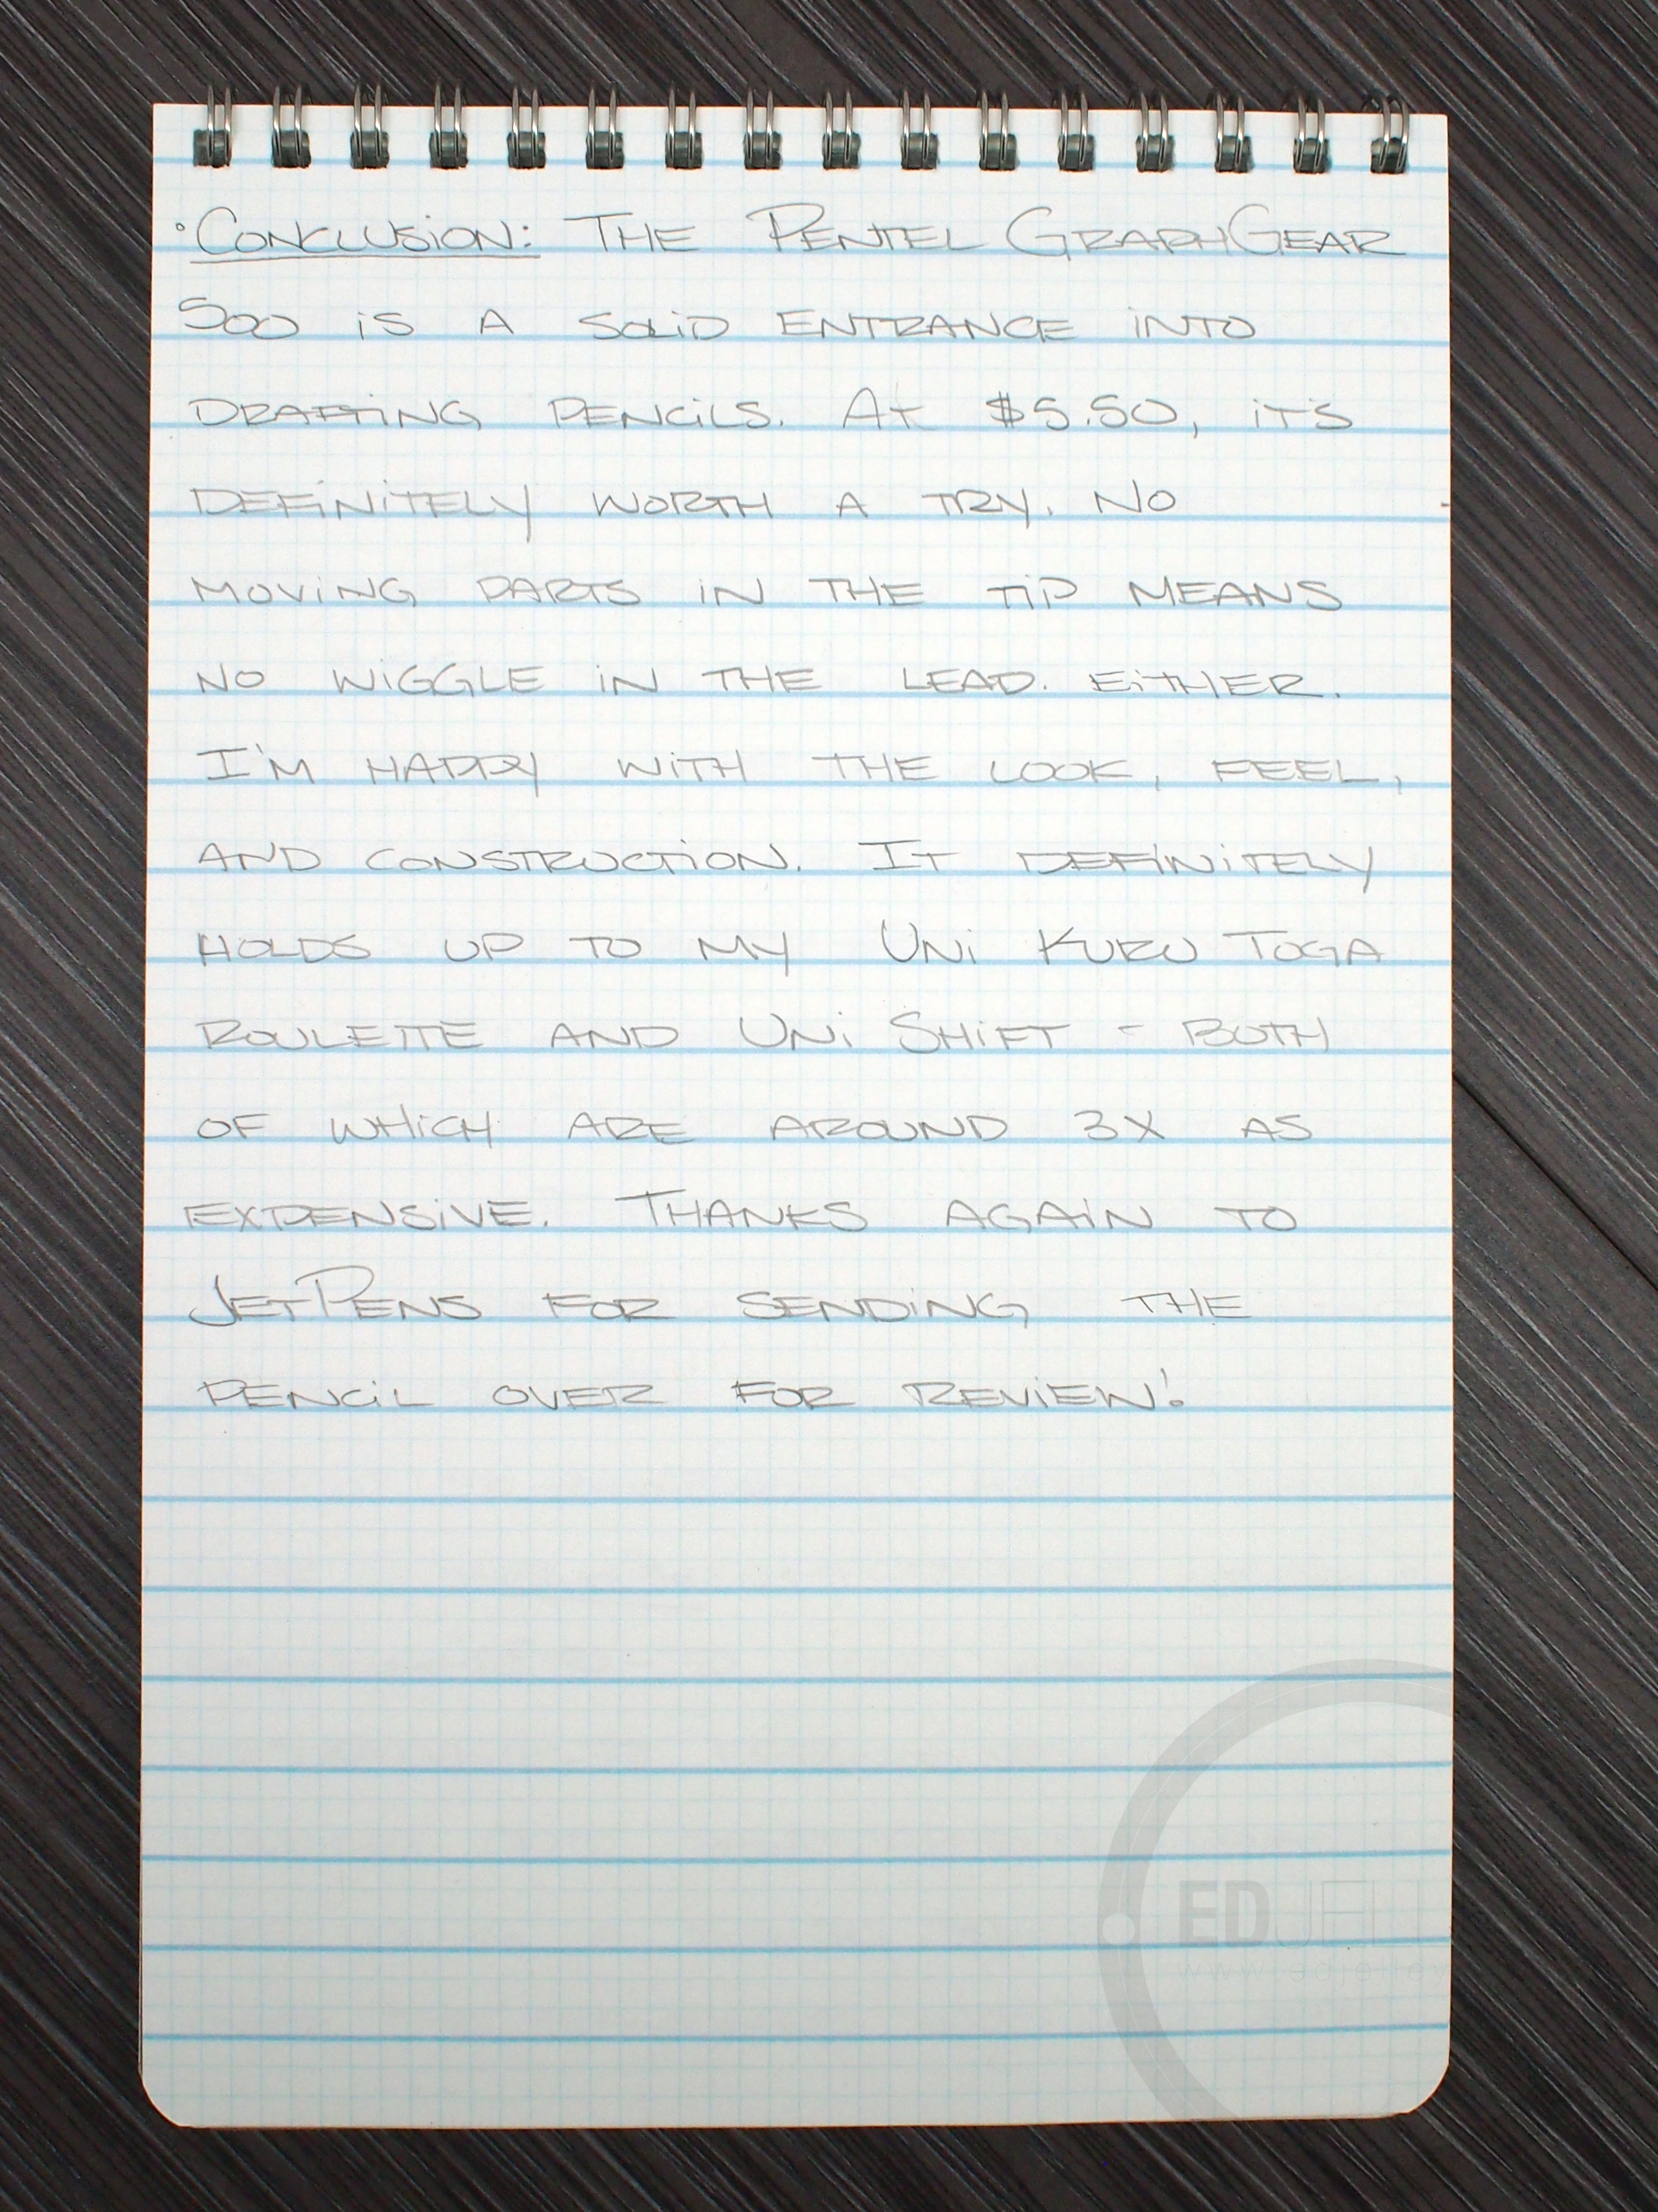 • Conclusion: The Pentel GraphGear
500 is a solid entrance into
drafting pencils. At $5.50, it's
definitely worth a try. No
moving parts in the tip means
no wiggle in the lead. Either.
I'm happy with the look, feel,
and construction. It definitely
holds up to my Uni Kuru Toga
Roulette and Uni Shift - both
of which are around 3x as
expensive. Thanks again to
JetPens for sending the
pencil over for review!
ED